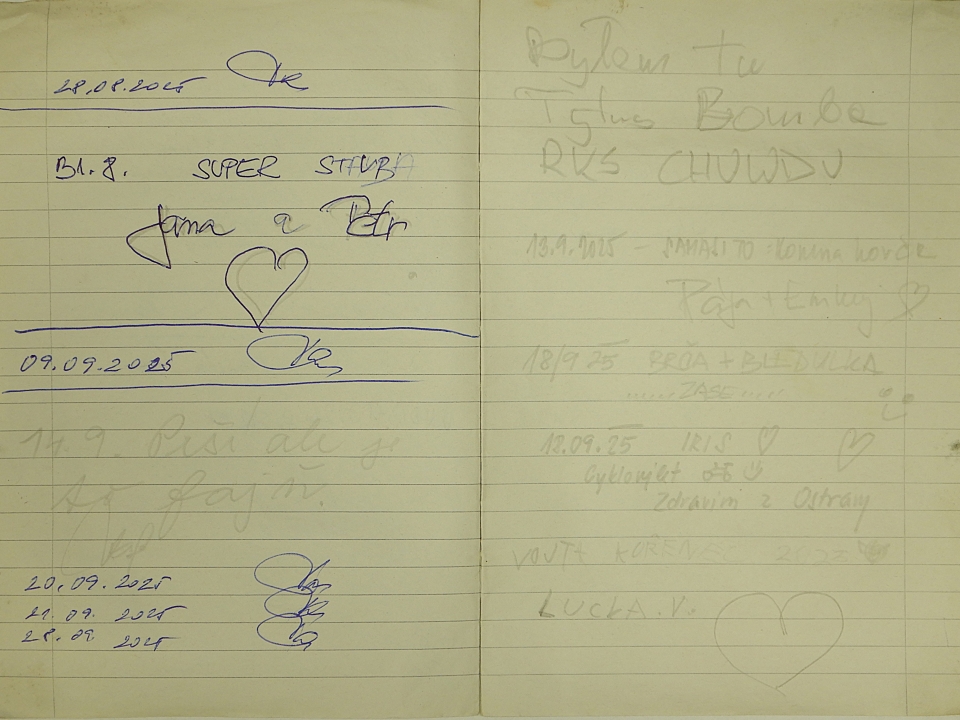 28.08.2025
31.8. SUPER STAVBA
Jana a Petr
09.09.2025
17.9. Prší ale je
to fajň.
20.09.2025
21.09. 2025
28.09. 2025
Byłem tu
Tytus Bomba
RKS CHUWDU
13.9.2025 - SAMAŠI TO
Pája + Emkej
18/9 25 BRÓA + BLEDULKA
......ZASE......
13.09.25 IRIS
Cyklovýlet
Zdravím z Ostravy
LUCKA.V.